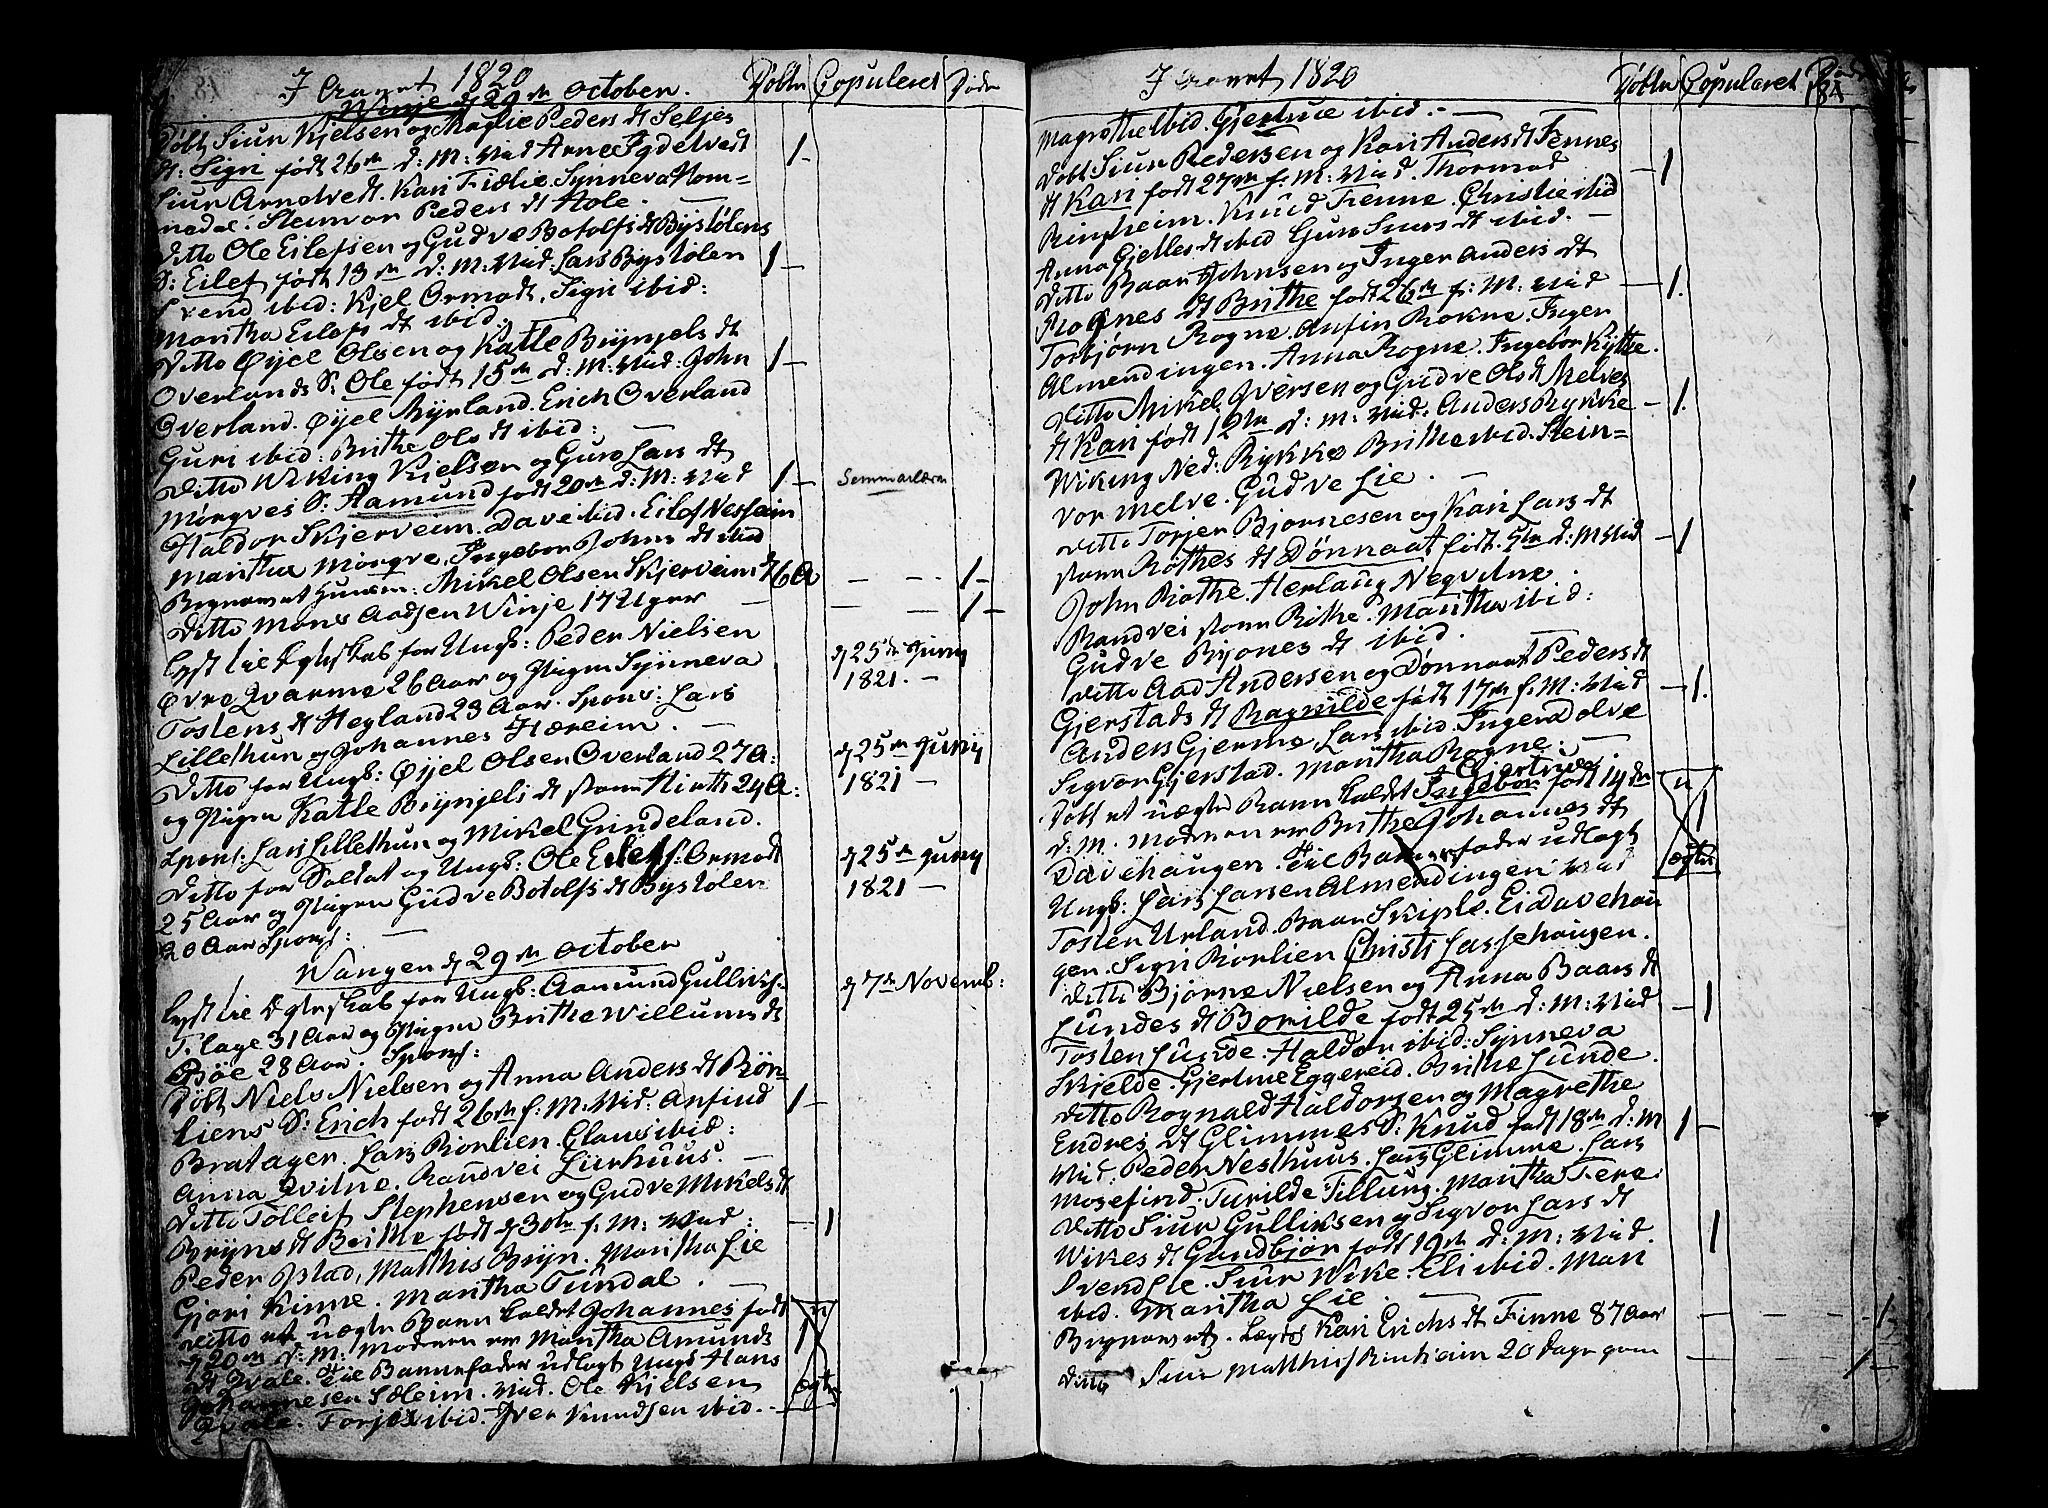 I Aaret 1820 Døbte Copuleret Døde
Winje d 29de October.
Døbt Siur Kjelsen og Maglie Peders dt Seljes
dt: Sigri født 26de d: M: Vid Arne Igdetvedt 1-
Siur Arnetvedt. Kari Fiælie. Synneva Hom=
nedal. Steinvor Peders dt Hole.
Ditto Ole Eilefsen og Gudve Botolfs dt Bystølens
S: Eilef født 13de d: M: Vid. Lars Bystølen 1-
Svend ibid: Kjel Ormodt, Sigri ibid:
Maritha Eilefs dt ibid.
Ditto Øyjel Olsen og Katle Brynjels dt
Overlands S: Ole født 15de d: M: Vid. John 1-
Overland. Øyjel Myrland. Erich Overland
Guri ibid: Brithe Ols dt ibid:
Ditto Wiking Kielsen og Guro Lars dt
Mørqves S: Aamund født 20de d: M: Vid 1- Semmerlæren
Haldor Skjerveim. Dave ibid. Eilef Nesheim
Maritha Mørqve. Ingebor Johns dt ibid
Begravet Huusm: Mikel Olsen Skjerveim 76 A - -- 1-
Ditto Mons Aadsen Winje 17 Uger - - 1-
Lyst til Egteskab for Ungk: Peder Nielsen
Øvre Qvarme 26 Aar og Pigen Synneva d 25de Juny
Tostens dt Hegland 23 Aar. Spons: Lars 1821. -
Lillethun og Johannes Hæreim.
Ditto for Ungk: Øyjel Olsen Overland 27 A: d 25de Juny
og Pigen Katle Brynjels dt store Hirth 24 A: 1821 -
Spons: Lars Lillethun og Mikel Grindeland.
Ditto for Soldat og Ungk: Ole Eilefs: Ormodt d 25de Juny
25 Aar og Pigen Gudve Botolfs dt Bystølen 1821 -
20 Aar Spons:
Wangen d 29de October
Lyst til Egteskab for Ungk: Aamund Gulliks: d 7de Novemb:
Flage 31 Aar og Pigen Brithe Willums dt
Bøe 28 Aar. Spons:
Døbt Niels Nielsen og Anna Anders dt Røn-
liens S: Erich født 26de f: M: Vid: Anfind 1-
Bratager. Lars Rønlien. Claus ibid:
Anna Qvilne. Randvei Liirhuus.
Ditto Tolleif Stephensen og Gudve Mikels dt
Bryns dt Brithe født d 30te f: M: Vid: -1
Peder Istad, Matthis Bryn. Maritha Lie
Gjøri Kinne. Maritha Tundal.
Ditto et uægte Barn kaldet Johannes født u
d 20de d: M: Moderen er Maritha Amunds 1
dt Qvale. Til Barnefader udlagt Ungk Hans
Johannesen Sæleim. Vid. Ole Kjelsen ægte
Qvale. Torjer ibid. Iver Knudsen ibid.
I Aaret 1820 Døbte Copuleret Døde
Magrethe ibid. Gjertrue ibid.
Døbt Siur Pedersen og Kari Anders dt Fennes
dt Kari født 27de f: M: Vid. Thormod -1
Ringheim. Knud Fenne. Christie ibid
Anna Gjelles dt ibid Guro Siurs dt ibid.
Ditto Baar Johnsen og Inger Anders dt
Rognes dt Brithe født 26de f: M: Vid -1.
Torbjørn Rogne. Anfin Rokne. Inger
Almendingen. Anna Rogne. Ingebor Kytte.
Ditto Mikel Iversen og Gudve Ols dt Melves
dt Kari født 12te d: M: Vid: Anders Rykke -1.
Wiking Ned: Rykke Brithe ibid. Stein=
vor Melve. Gudve Lie.
Ditto Torjer Bjørnesen og Kari Lars dt
store Røthes dt Dønnaat født 5te d: M Vid -1
John Røthe. Herlaug Neqvitne.
Randvei store Røthe. Maritha ibid:
Gudve Bjønes dt ibid.
Ditto Aad Andersen og Dønnaat Peders dt
Gjerstads dt Ragnilde født 17de f: M: Vid -1.
Anders Gjerme, Lars ibid. Inger Dolve
Sigvor Gjerstad. Maritha Rogne.
Gjertrue
Døbt et uægte Barn kaldet Ingebor født 14de u
d: M. Moderen er Brithe Johannes dt 1
Davehaugen. Til Barnefader udlagt
Ungk: Lars Larsen Almendingen Vid ægte
Tosten Urland. Baar Skiple. Ei Davehou
gen. Sigri Rønlien Christi Lassehaugen.
Ditto Bjørne Nielsen og Anna Baars dt
Lundes dt Borilde født 25de d: M: Vid -1
Tosten Lunde. Haldor ibid: Synneva
Skjelde. Gjertrue Eggereid. Brithe Lunde.
Ditto Rognald Haldorsen og Magrethe
Endres dt Glimmes S: Knud født 18de d: M 1-
Vid: Peder Nesthuus. Lars Glimme. Lars
Mosefind. Turilde Tillung. Maritha Fere
Ditto Siur Gulliksen og Sigvor Lars dt
Wikes dt Gundbjør født 19de d: M: Vid. 1
Svend Lie. Siur Wike. Eli ibid. Mari
ibid. Maritha Lie.
Begravet. Lægds Kari Erichs dt Finne 87 Aar - - - 1-
Ditto Siur Matthis Rinheim 20 Dage gam - - 1-